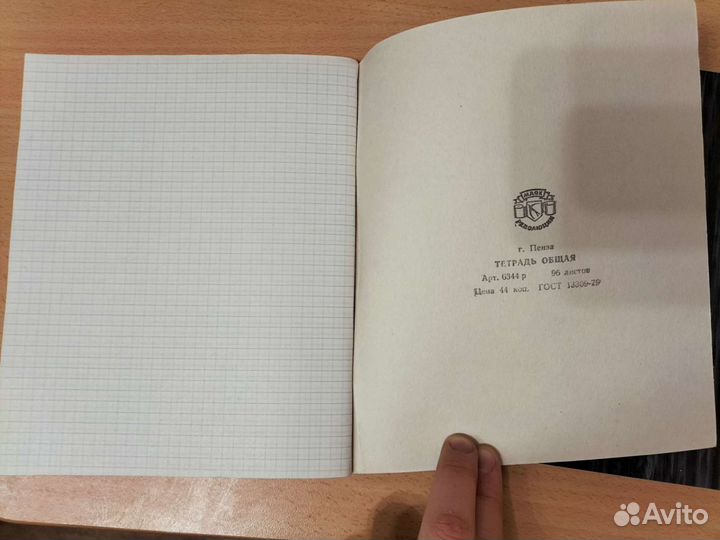 МАЯК
РЕВОЛЮЦИИ
г. Пенза
ТЕТРАДЬ ОБЩАЯ
Арт. 6344 р 96 листов
Цена 44 коп. ГОСТ 13309-79
Avito